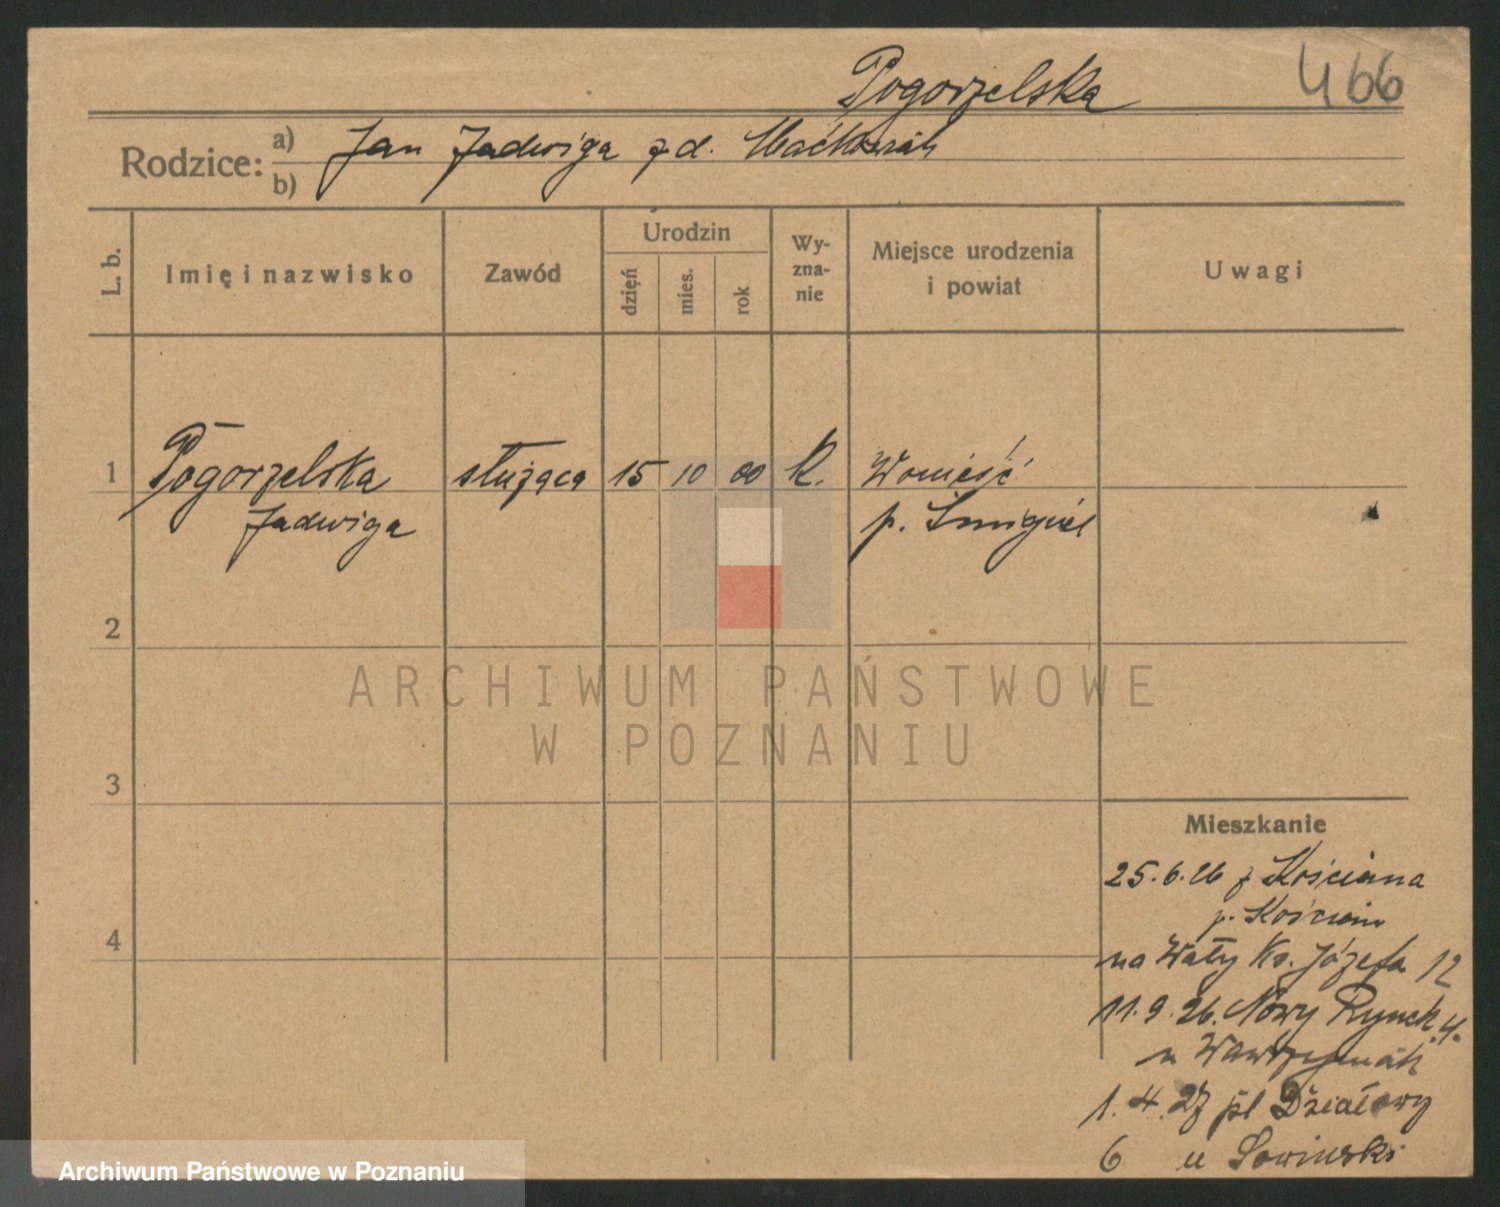 Pogorzelska
466
Rodzice:
a) Jan Jadwiga z d.
b)
L. b.
Imię i nazwisko
Zawód
Urodzin
dzień
mies.
rok
Wy-
zna-
nie
Miejsce urodzenia
i powiat
Uwagi
1 Pogorzelska służąca 15 10 00 K. Wonieść
Jadwiga p. Śmigiel
2
3
4
Mieszkanie
25.6.26 z Kościana
p. Kościan
na Wały Ks. Józefa 12
11.9.26. Nowy Rynek 4.
u Wawrzyniak
1.4.27 pl Działowy
6 u Sowinski
ARCHIWUM PAŃSTWOWE
W POZNANIU
Archiwum Państwowe w Poznaniu